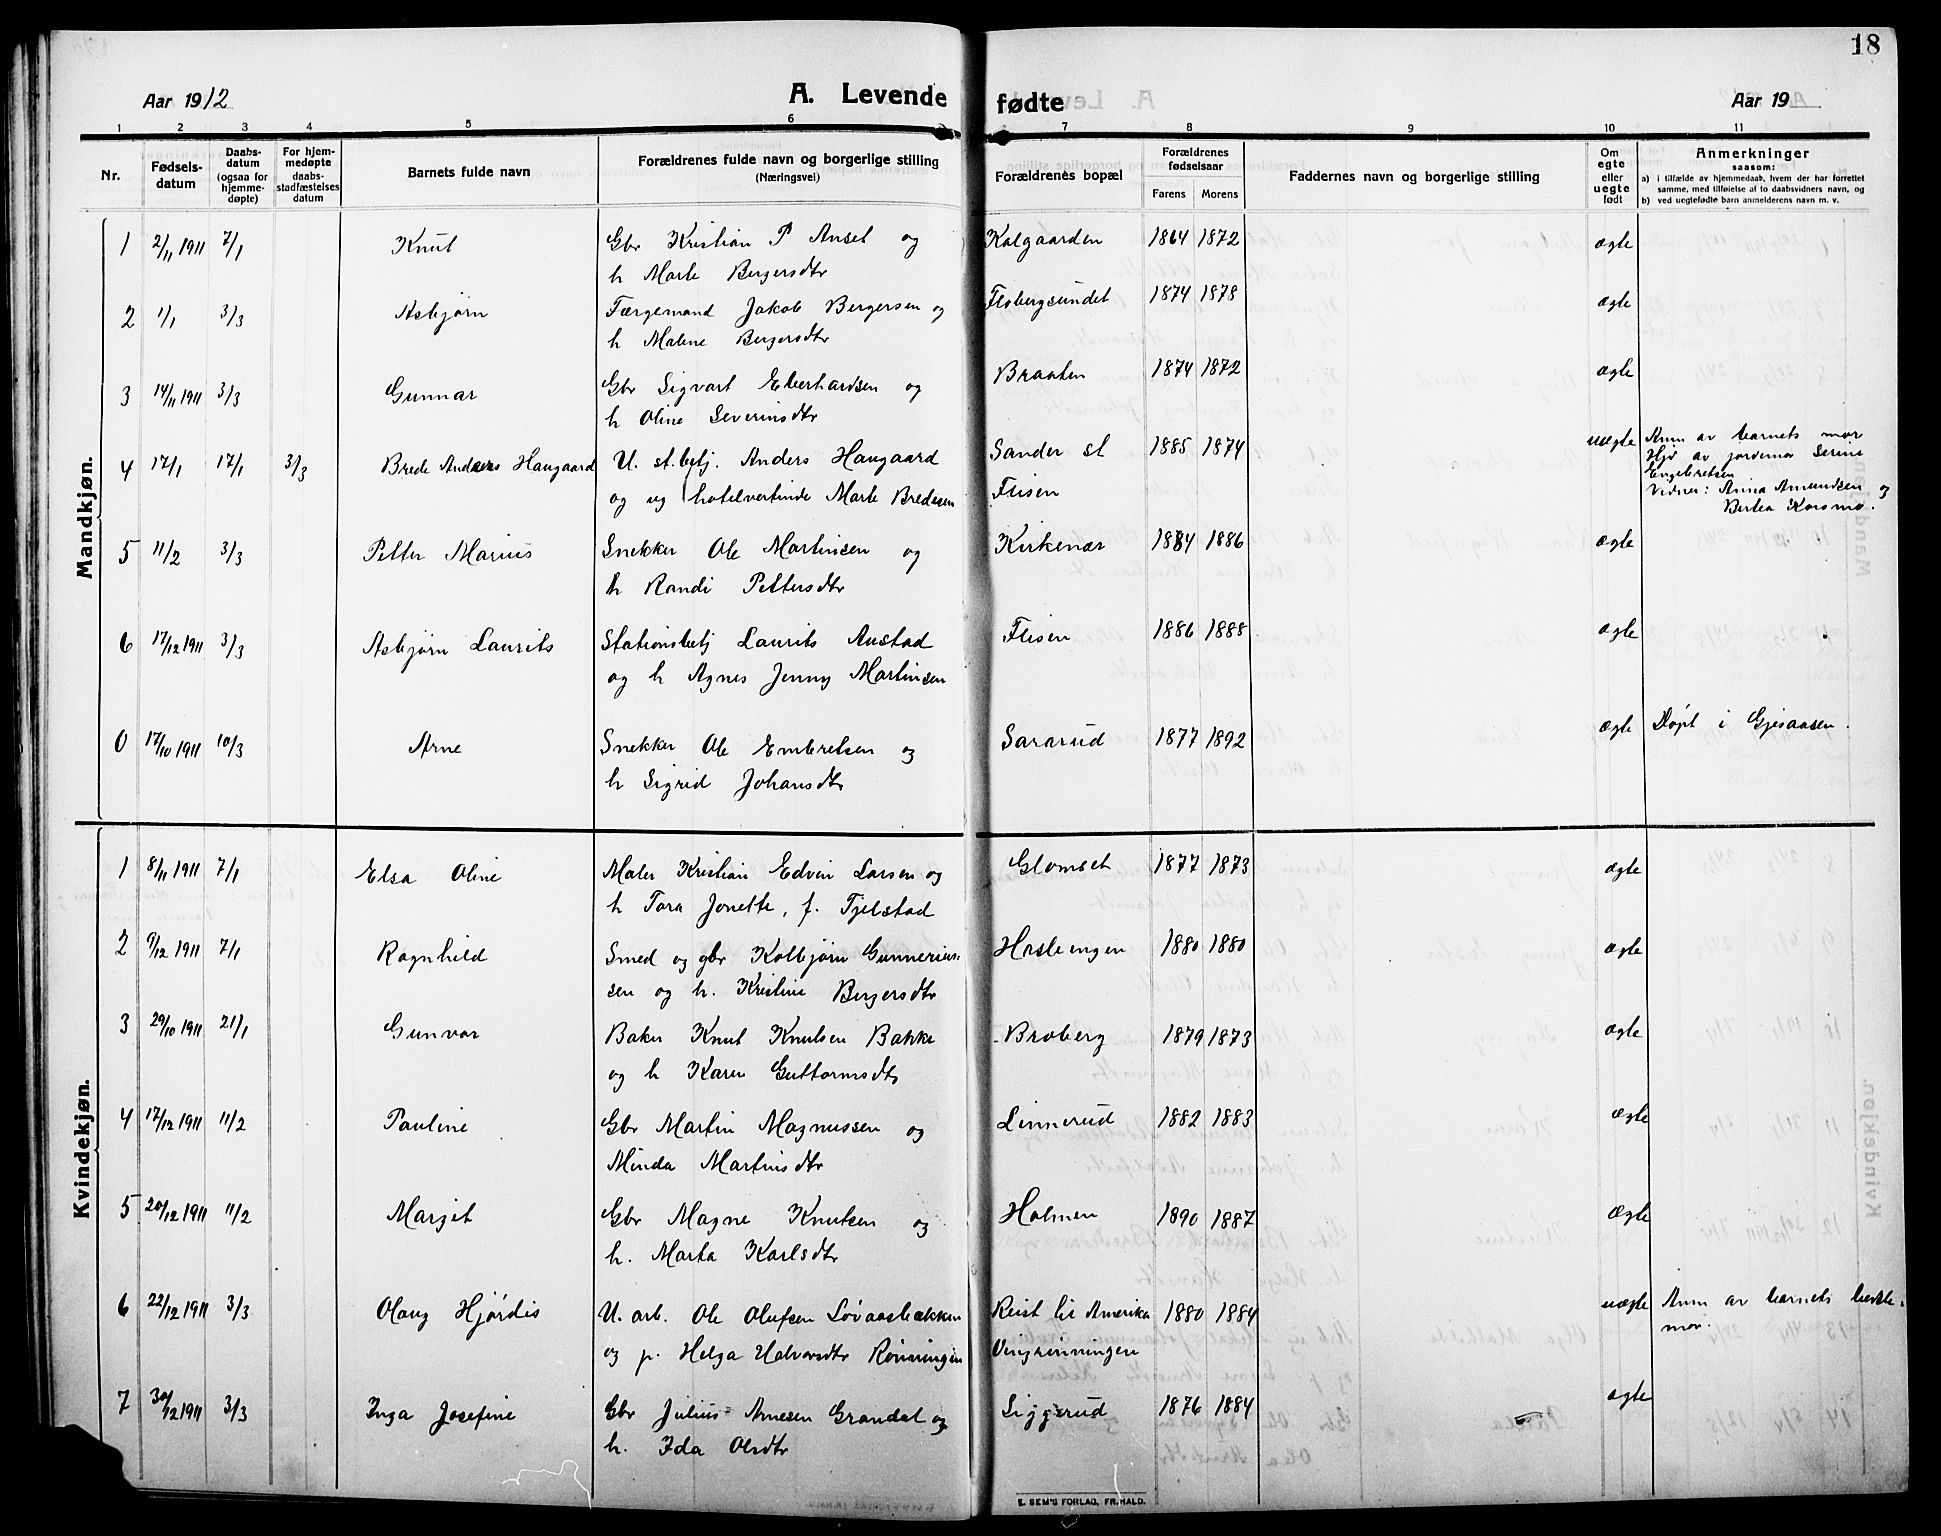 18
Aar 1912
A. Levende fødte
Aar 19
1 2 3 4 5 6 7 8 9 10 11
Nr.
Fødsels-
datum
Daabs-
datum
(ogsaa for
hjemme-
døpte)
For hjem-
medøpte
daabs-
stadfæstelses
datum
Barnets fulde navn
Forældrenes fulde navn og borgerlige stilling
(Næringsvei)
Forældrenes bopæl
Forældrenes
fødselsaar
Farens Morens
Faddernes navn og borgerlige stilling
Om
egte
eller
uegte
født
Anmerkninger
saasom:
a) i tilfælde av hjemmedaab, hvem der har forrettet
samme, med tilføielse af to daabsvidners navn, og
b) ved uegtefødte barn anmelderens navn m. v.
Mandkjøn.
1 2/11 1911 7/1 Knut Gbr Kristian P Anset og Kalgaarden 1864 1872 ægte
h Marte Bergersdtr
2 1/1 3/3 Asbjørn Færgemand Jakob Bergersen og Flisbergsundet 1874 1878 ægte
h Malene Bergersdtr
3 14/11 1911 3/3 Gunnar Gbr Sigvart Eberhardsen og Braaten 1874 1872 ægte
h Oline Severinsdtr
4 17/1 17/1 3/3 Brede Anders Haugaard U. st.betj. Anders Haugaard Sander st 1885 1874 uægte Anm av barnets mor
og ug hotelvertinde Marte Bredesen Flisen Hjd av jordemor Serine
Engebretsen
Vidner: Anna Amundsen og
Bertea Korsmo.
5 11/2 3/3 Petter Marius Snekker Ole Martinsen og Kirkenær 1884 1886 ægte
h Randi Pettersdtr
6 17/12 1911 3/3 Asbjørn Laurits Stationsbetj Laurits Austad Flisen 1886 1888 ægte
og h Agnes Jenny Martinsen
0 17/10 1911 10/3 Arne Snekker Ole Embretsen og Sararud 1877 1892 ægte Døpt i Gjesaasen.
h Sigrid Johansdtr
Kvindekjøn.
1 8/11 1911 7/1 Elsa Oline Maler Kristian Edvin Larsen og Glomset 1877 1873 ægte
h Tora Jonette, f. Fjelstad
2 9/12 1911 7/1 Ragnhild Smed og gbr Kolbjørn Gunnerius- Hasleengen 1880 1880 ægte
sen og h. Kristine Bergersdtr
3 29/10 1911 21/1 Gunvor Baker Knut Knutsen Bakke Broberg 1879 1873 ægte
og h Karen Guttormsdtr
4 17/12 1911 11/2 Pauline Gbr Martin Magnussen og Linnerud 1882 1883 ægte
Minda Martinsdtr
5 20/12 1911 11/2 Margit Gbr Magne Knutsen og Holmen 1890 1887 ægte
h. Marta Karlsdtr
6 22/12 1911 3/3 Olaug Hjørdis U. arb. Ole Olufsen Løvaasbækken Reist til Amerika 1880 1884 uægte Anm av barnets beste-
og p. Helga Halvorsdtr Rønningen mor.
7 30/12 1911 3/3 Inga Josefine Gbr Julius Arnesen Grandal og Siggerud 1876 1884 ægte
h. Ida Olsdtr
E. SEM'S FORLAG, FR.HALD.